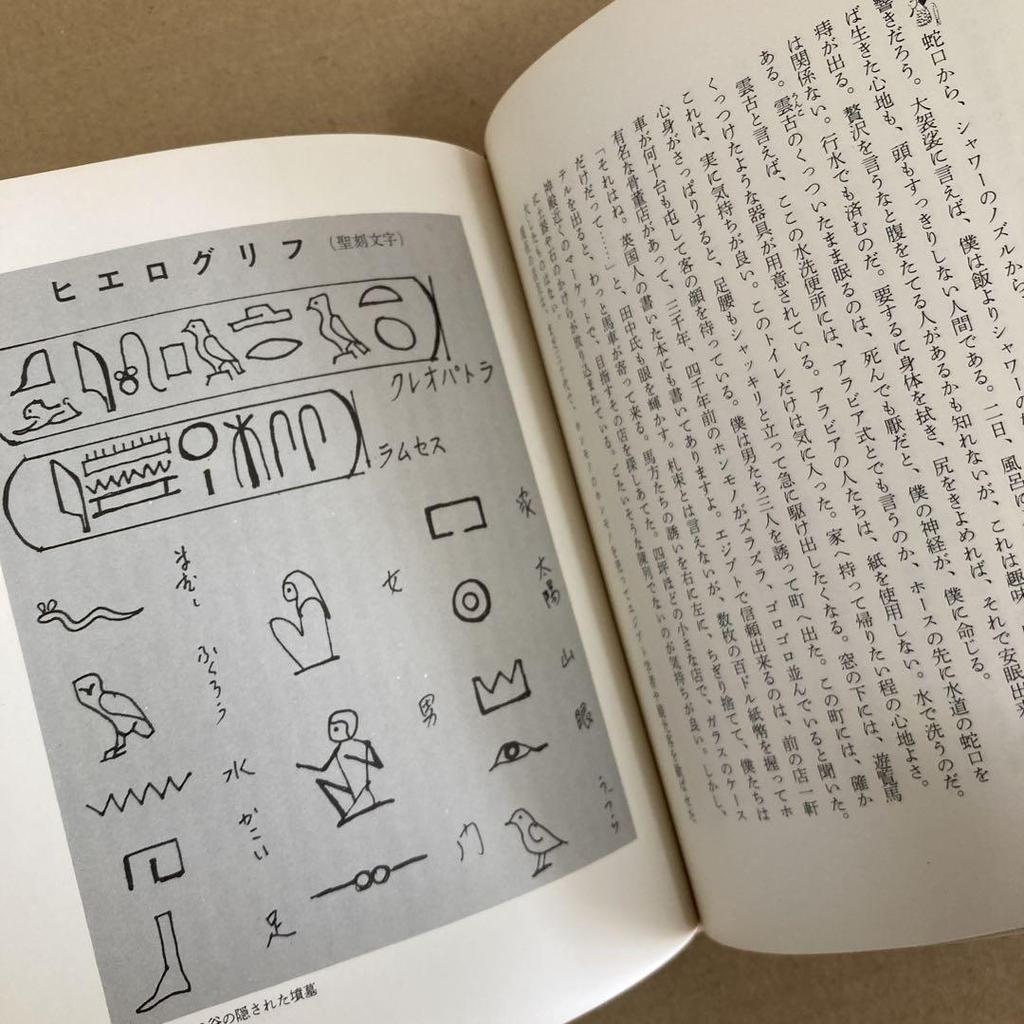 蛇口から、シャワーのノズルから、
響きだろう。大袈裟に言えば、僕は飯よりシャワーの
ば生きた心地も、頭もすっきりしない人間である。二日、風呂に
痔が出る。贅沢を言うなと腹をたてる人があるかも知れないが、これは趣味
は関係ない。行水でも済むのだ。要するに身体を拭き、尻をきよめれば、それで安眠出来
ある。雲古のくっついたまま眠るのは、死んでも厭だと、僕の神経が、僕に命じる。
雲古と言えば、ここの水洗便所には、アラビア式とでも言うのか、ホースの先に水道の蛇口を
くっつけたような器具が用意されている。アラビアの人たちは、紙を使用しない。水で洗うのだ。
これは、実に気持ちが良い。このトイレだけは気に入った。家へ持って帰りたい程の心地よさ。
心身がさっぱりすると、足腰もシャッキリと立って急に駆け出したくなる。窓の下には、遊覧馬
車が何十台も屯して客の顔を待っている。僕は男たち三人を誘って町へ出た。この町には、確か
有名な骨董店があって、三千年、四千年前のホンモノがズラズラ、ゴロゴロ並んでいると聞いた。
「それはね。英国人の書いた本にも書いてありますよ。エジプトで信頼出来るのは、前の店一軒
だけだって……」と、田中氏も眼を輝かす。札束とは言えないが、数枚の百ドル紙幣を握ってホ
テルを出ると、わっと馬車が寄って来る。馬方たちの誘いを右に左に、ちぎり捨てて、僕たちは
神殿近くのマーケットで、目指すその店を探しあてた。四坪ほどの小さな店で、ガラスのケース
ヒエログリフ（聖刻文字）
クレオパトラ
ラムセス
家
太陽
山
眼
うづら
女
男
門
まむし
ふくろう
水
かこい
足
谷の隠された墳墓